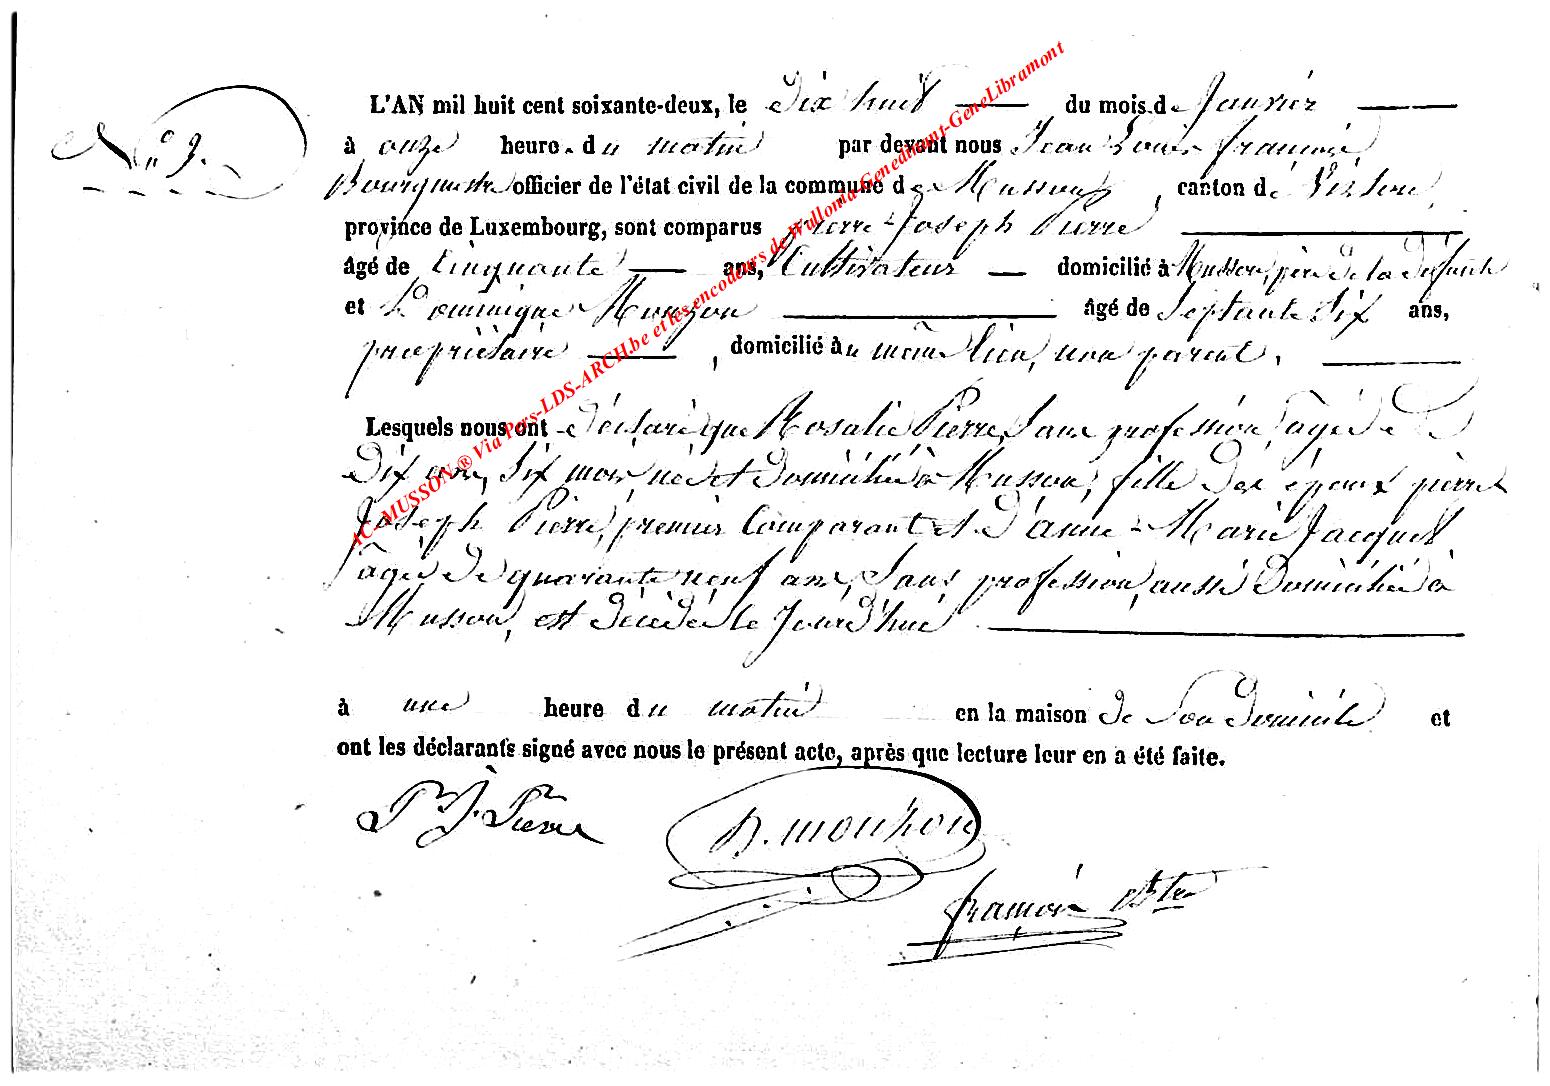 L'AN mil huit cent soixante-deux, le dix huit du mois de Janvier
N° 3.
à onze heure. du matin par devant nous Jean Louis françois
Bourgmestre officier de l'état civil de la commune de Musson, canton de Virton,
province de Luxembourg, sont comparus Pierre-Joseph Pierre
âgé de Cinquante ans, Cultivateur domicilié à Musson, père de la défunte
et Dominique Mouzon âgé de Septante Six ans,
propriétaire, domicilié au même lieu, non parent.
Lesquels nous ont déclaré, que Rosalie Pierre, Sans profession, agée de
Dix ans, Six mois, née et domiciliée à Musson, fille des époux pierre
Joseph Pierre, premier Comparant et d'anne-Marie Jacquet
agée de quarante neuf ans, Sans profession, aussi Domiciliée à
Musson, est décédée le Jourd'hui
à une heure du matin en la maison de Son domicile et
ont les déclarants signé avec nous le présent acte, après que lecture leur en a été faite.
P. J. Pierre
D. mouzon
françois
AC-MUSSON ® Via Pers-LDS-ARCH.be et les encodeurs de Wallonia-Genedinant-GeneLibramont